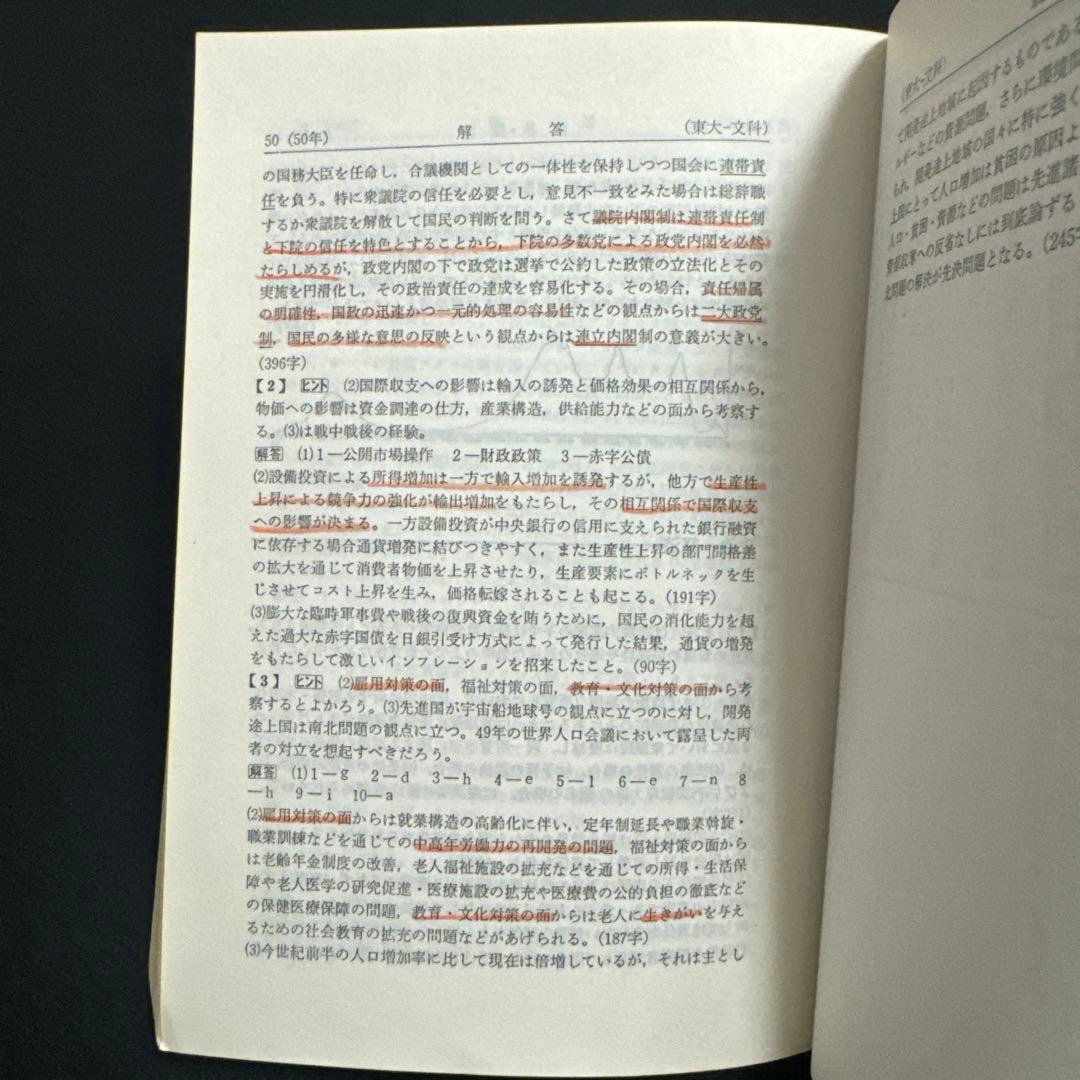 50 (50年) 解答 (東大-文科)
の国務大臣を任命し，合議機関としての一体性を保持しつつ国会に連帯責
任を負う。特に衆議院の信任を必要とし，意見不一致をみた場合は総辞職
するか衆議院を解散して国民の判断を問う。さて議院内閣制は連帯責任制
と下院の信任を特色とすることから，下院の多数党による政党内閣を必然
たらしめるが，政党内閣の下で政党は選挙で公約した政策の立法化とその
実施を円滑化し，その政治責任の達成を容易化する。その場合，責任帰属
の明確性，国政の迅速かつ一元的処理の容易性などの観点からは二大政党
制，国民の多様な意思の反映という観点からは連立内閣制の意義が大きい。
(396字)
【2】 ヒント (2)国際収支への影響は輸入の誘発と価格効果の相互関係から，
物価への影響は資金調達の仕方，産業構造，供給能力などの面から考察す
る。(3)は戦中戦後の経験。
解答 (1)1―公開市場操作 2―財政政策 3―赤字公債
(2)設備投資による所得増加は一方で輸入増加を誘発するが，他方で生産性
上昇による競争力の強化が輸出増加をもたらし，その相互関係で国際収支
への影響が決まる。一方設備投資が中央銀行の信用に支えられた銀行融資
に依存する場合通貨増発に結びつきやすく，また生産性上昇の部門間格差
の拡大を通じて消費者物価を上昇させたり，生産要素にボトルネックを生
じさせてコスト上昇を生み，価格転嫁されることも起こる。(191字)
(3)膨大な臨時軍事費や戦後の復興資金を賄うために，国民の消化能力を超
えた過大な赤字国債を日銀引受け方式によって発行した結果，通貨の増発
をもたらして激しいインフレーションを招来したこと。(90字)
【3】 ヒント (2)雇用対策の面，福祉対策の面，教育・文化対策の面から考
察するとよかろう。(3)先進国が宇宙船地球号の観点に立つのに対し，開発
途上国は南北問題の観点に立つ。49年の世界人口会議において露呈した両
者の対立を想起すべきだろう。
解答 (1)1―g 2―d 3―h 4―e 5―l 6―e 7―n 8
―h 9―i 10―a
(2)雇用対策の面からは就業構造の高齢化に伴い，定年制延長や職業斡旋・
職業訓練などを通じての中高年労働力の再開発の問題，福祉対策の面から
は老齢年金制度の改善，老人福祉施設の拡充などを通じての所得・生活保
障や老人医学の研究促進・医療施設の拡充や医療費の公的負担の徹底など
の保健医療保障の問題，教育・文化対策の面からは老人に生きがいを与え
るための社会教育の拡充の問題などがあげられる。(187字)
(3)今世紀前半の人口増加率に比して現在は倍増しているが，それは主とし
(東大-文科)
て開発途上地域に起因するものである
ルギーなどの資源問題，さらに環境問
らぬ。開発途上地域の国々に特に強く
上国にとって人口増加は貧困の原因よ
人口・貧困・資源などの問題は先進諸
資源収奪への反省なしには到底論ずる
北問題の解決が先決問題となる。(245字